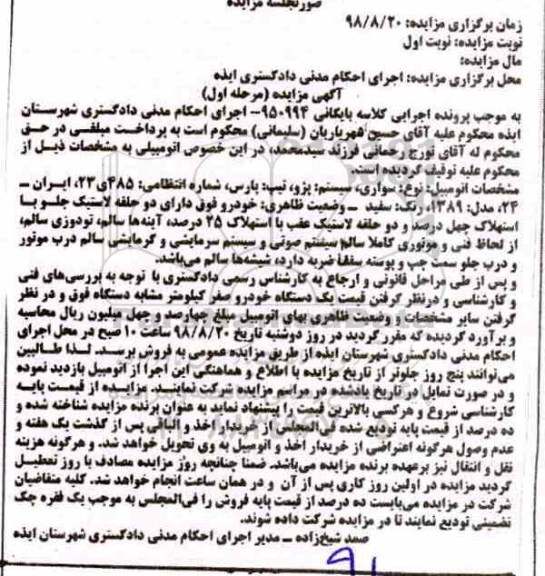 صورتجلسه مزایده
زمان برگزاری مزایده: ۹۸/۸/۲۰
نوبت مزایده: نوبت اول
مال مزایده:
محل برگزاری مزایده: اجرای احکام مدنی دادگستری ایذه
آگهی مزایده (مرحله اول)
به موجب پرونده اجرایی کلاسه بایگانی ۹۵۰۹۹۴– اجرای احکام مدنی دادگستری شهرستان
ایذه محکوم علیه آقای حسین شهریاریان (سلیمانی) محکوم است به پرداخت مبلغی در حق
محکوم له آقای تورج رحمانی فرزند سیدمحمد، در این خصوص اتومبیلی به مشخصات ذیل از
محکوم علیه توقیف گردیده است.
مشخصات اتومبیل: نوع: سواری، سیستم: پژو، تیپ: پارس، شماره انتظامی: ۴۸۵ی۲۳، ایران –
۲۴، مدل: ۱۳۸۹، رنگ: سفید – وضعیت ظاهری: خودرو فوق دارای دو حلقه لاستیک جلو با
استهلاک چهل درصد و دو حلقه لاستیک عقب با استهلاک ۲۵ درصد، آینه‌ها سالم، تودوزی سالم،
از لحاظ فنی و موتوری کاملا سالم سیستم صوتی و سیستم سرمایشی و گرمایشی سالم درب موتور
و درب جلو سمت چپ و پوسته سقف ضربه دارد، شیشه‌ها سالم می‌باشد.
و پس از طی مراحل قانونی و ارجاع به کارشناس رسمی دادگستری با توجه به بررسی‌های فنی
و کارشناسی و درنظر گرفتن قیمت یک دستگاه خودرو صفر کیلومتر مشابه دستگاه فوق و در نظر
گرفتن سایر مشخصات و وضعیت ظاهری بهای اتومبیل مبلغ چهارصد و چهل میلیون ریال محاسبه
و برآورد گردیده که مقرر گردید در روز دوشنبه تاریخ ۹۸/۸/۲۰ ساعت ۱۰ صبح در محل اجرای
احکام مدنی دادگستری شهرستان ایذه از طریق مزایده عمومی به فروش برسد. لذا طالبین
می‌توانند پنج روز جلوتر از تاریخ مزایده با اطلاع و هماهنگی این اجرا از اتومبیل بازدید نموده
و در صورت تمایل در تاریخ یادشده در مراسم مزایده شرکت نمایند. مزایده از قیمت پایه
کارشناسی شروع و هرکسی بالاترین قیمت را پیشنهاد نماید به عنوان برنده مزایده شناخته شده و
ده درصد از قیمت پایه تودیع شده فی‌المجلس از خریدار اخذ و الباقی پس از گذشت یک هفته و
عدم وصول هرگونه اعتراضی از خریدار اخذ و اتومبیل به وی تحویل خواهد شد. و هرگونه هزینه
نقل و انتقال نیز برعهده برنده مزایده می‌باشد. ضمنا چنانچه روز مزایده مصادف با روز تعطیل
گردید مزایده در اولین روز کاری پس از آن و در همان ساعت انجام خواهد شد. کلیه متقاضیان
شرکت در مزایده می‌بایست ده درصد از قیمت پایه فروش را فی‌المجلس به موجب یک فقره چک
تضمینی تودیع نمایند تا در مزایده شرکت داده شوند.
صمد شیخ‌زاده – مدیر اجرای احکام مدنی دادگستری شهرستان ایذه
۹۱